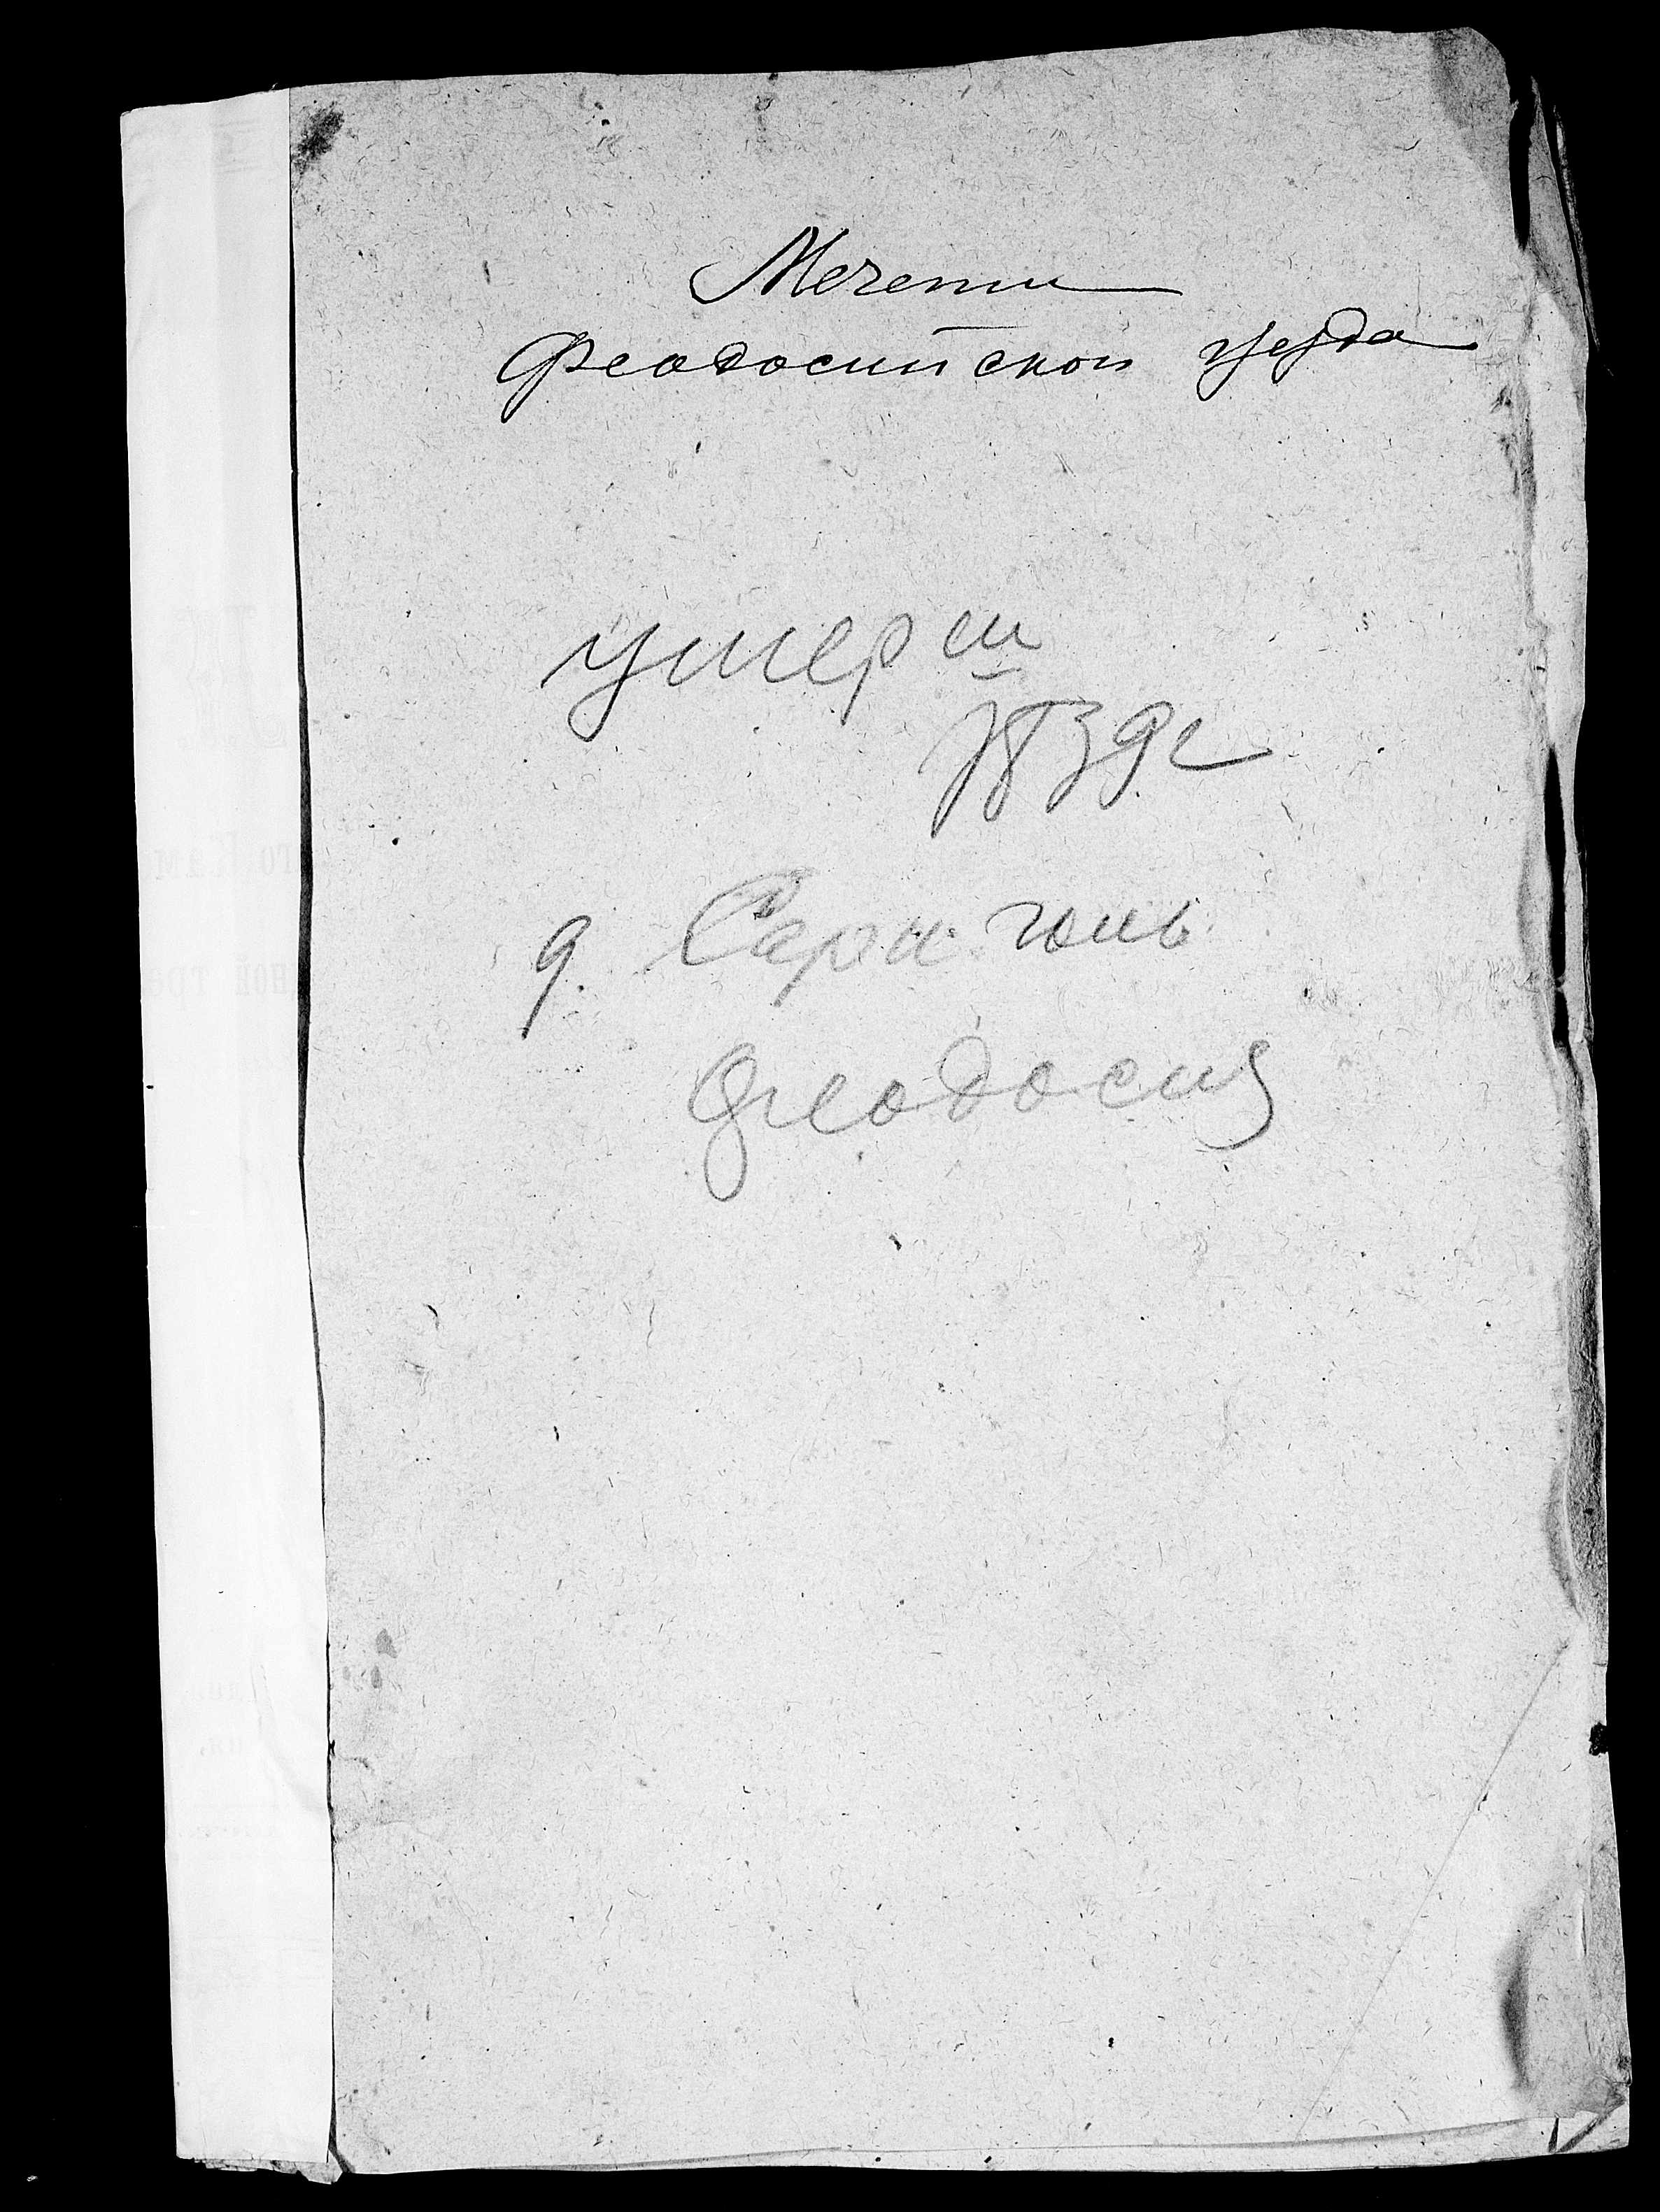 Мечети
Феодосийской уезда
умерш
1839г
д. Сари-голь
Феодосия